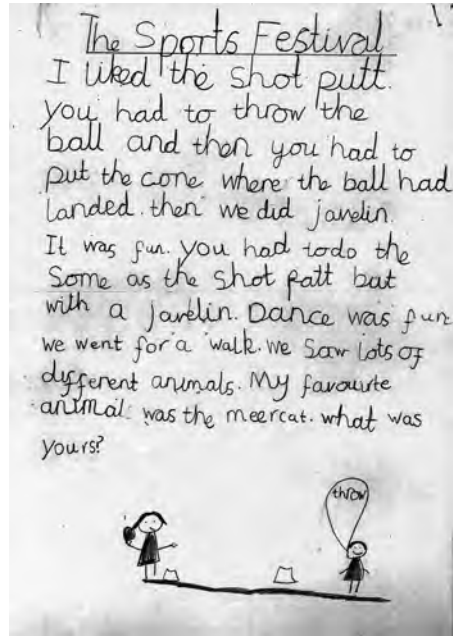 The Sports Festival
I liked the shot putt.
you had to throw the
ball and then you had to
put the cone where the ball had
landed. then we did javelin.
It was fun. you had todo the
Some as the shot patt but
with a javelin. Dance was fun
we went for a walk. we saw lots of
different animals. My favourite
animal was the meercat. what was
yours?
throw